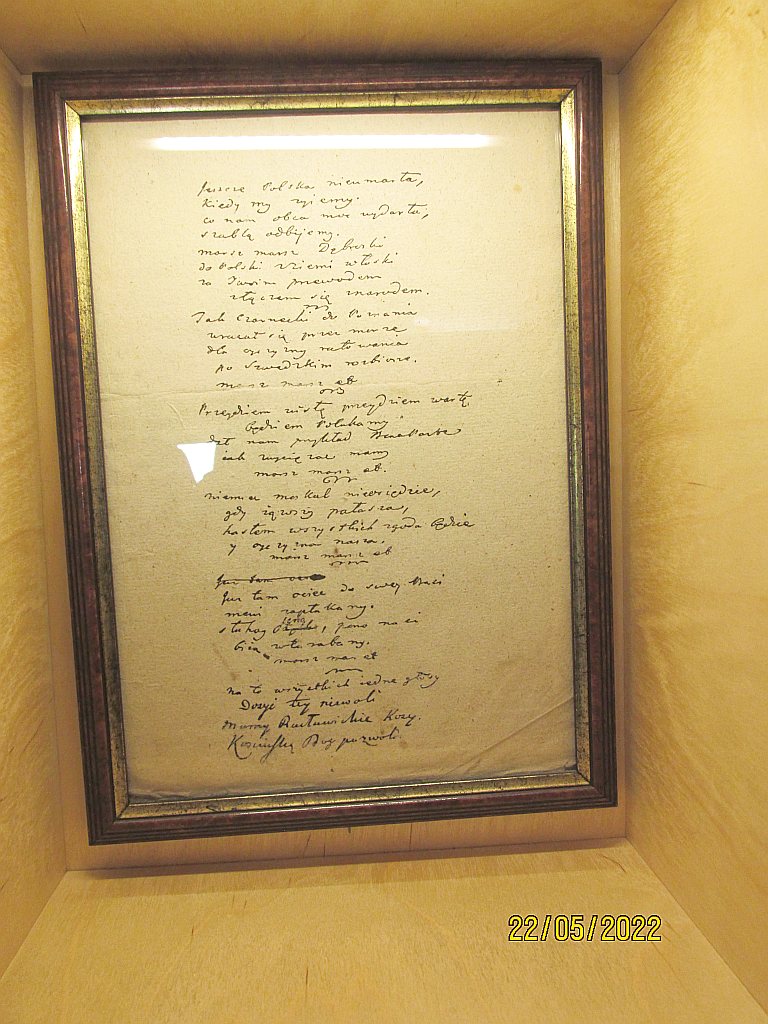 Jeszcze Polska nieumarła,
kiedy my żyiemy.
co nam obca moc wydarła,
szablą odbijemy.
marsz marsz Dąbrowski
do Polski z ziemi włoski
za Twoim przewodem
złączem się znarodem.
Jak Czarnecki do Poznania
wracał się przez morze
dla oyczyzny ratowania
po Szwedzkim rozbiorze.
marsz marsz etc
Przeydziem Wisłę przeydziem wartę
będziem Polakamy
dał nam przykład Bonaparte
iak zwyciężać mamy
marsz marsz etc.
niemiec moskal nieosiędzie,
gdy iąwszy pałasza,
hasłem wszystkich zgoda będzie
y oyczyzna nasza.
marsz marsz etc
Już tam
Już tam ociec do swey Basi
mówi zapłakany.
słuchay ieno, pono nasi
biią w tarabany.
marsz marsz etc
na to wszystkich iedne głosy
Dosyć tey niewoli
mamy Racławickie Kosy.
Kościuszkę Bóg pozwoli.
22/05/2022